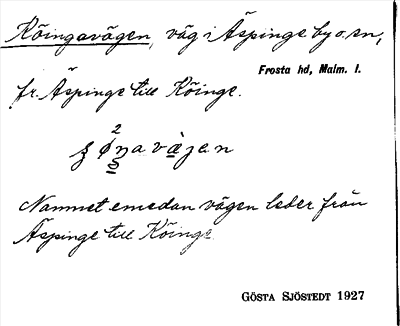 Köingavägen, väg i Äspinge by o. sn,
Frosta hd, Malm. l.
fr. Äspinge till Köinge.
Namnet emedan vägen leder från
Äspinge till Köinge
GÖSTA SJÖSTEDT 1927